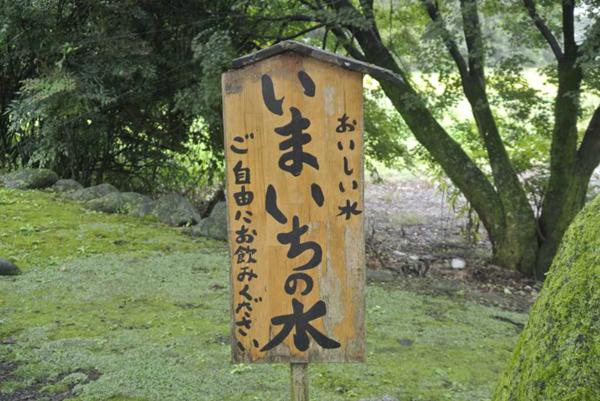 おいしい水
いまいちの水
ご自由にお飲みください